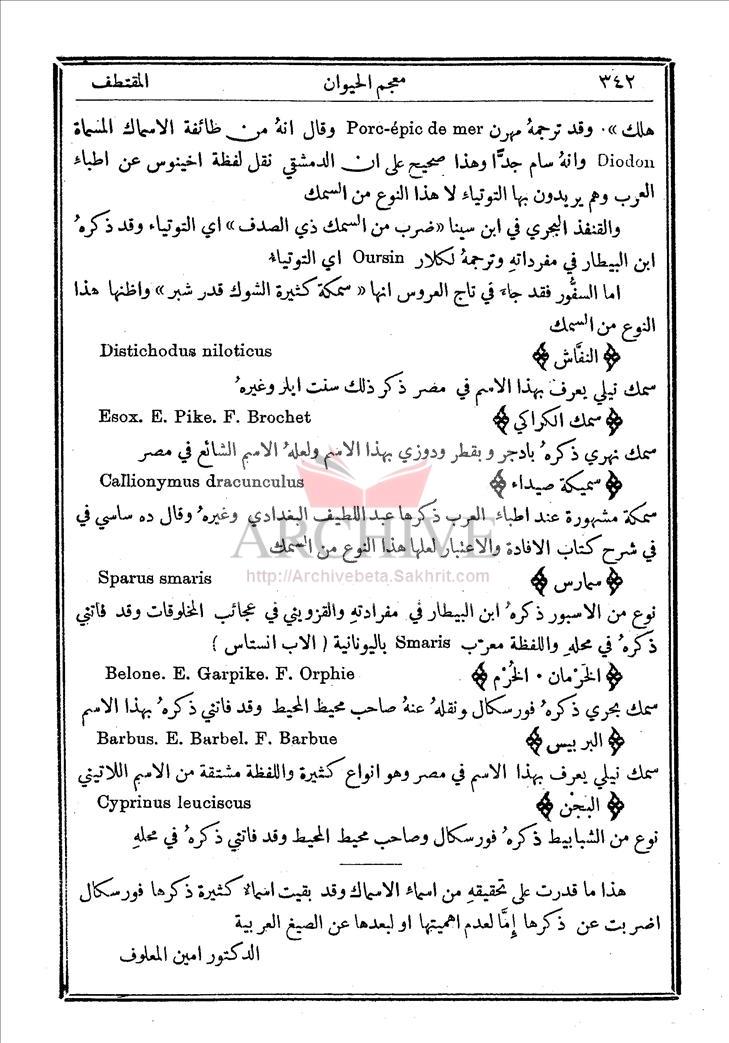 ٣٤٢ معجم الحيوان المقتطف
هلك » ٠ وقد ترجمهُ مهرن Porc-épic de mer وقال انهُ من طائفة الاسماك المسماة
Diodon وانهُ سام جدًّا وهذا صحيح على ان الدمشقي نقل لفظة اخينوس عن اطباء
العرب وهم يريدون بها التوتياء لا هذا النوع من السمك
والقنفذ البحري في ابن سينا «ضرب من السمك ذي الصدف» اي التوتياء وقد ذكرهُ
ابن البيطار في مفرداتهِ وترجمهُ لكلار Oursin اي التوتياء
اما السفُّور فقد جاء في تاج العروس انها « سمكة كثيرة الشوك قدر شبر » واظنها هذا
النوع من السمك
﴿ النفَّاش ﴾ Distichodus niloticus
سمك نيلي يعرف بهذا الاسم في مصر ذكر ذلك سنت ايلر وغيرهُ
﴿ سمك الكراكي ﴾ Esox. E. Pike. F. Brochet
سمك نهري ذكرهُ بادجر وبقطر ودوزي بهذا الاسم ولعلهُ الاسم الشائع في مصر
﴿ سميكة صيداء ﴾ Callionymus dracunculus
سمكة مشهورة عند اطباء العرب ذكرها عبد اللطيف البغدادي وغيرهُ وقال ده ساسي في
في شرح كتاب الافادة والاعتبار لعلها هذا النوع من السمك
ARCHIVE
http://Archivebeta.Sakhrit.com
﴿ سمارس ﴾ Sparus smaris
نوع من الاسبور ذكرهُ ابن البيطار في مفرداتهِ والقزويني في عجائب المخلوقات وقد فاتني
ذكرهُ في محلهِ واللفظة معرّب Smaris باليونانية ( الاب انستاس )
﴿ الخَرْمان ٠ الخُرَّم ﴾ Belone. E. Garpike. F. Orphie
سمك بحري ذكرهُ فورسكال ونقلهُ عنهُ صاحب محيط المحيط وقد فاتني ذكرهُ بهذا الاسم
﴿ البربيس ﴾ Barbus. E. Barbel. F. Barbue
سمك نيلي يعرف بهذا الاسم في مصر وهو انواع كثيرة واللفظة مشتقة من الاسم اللاتيني
﴿ البجْن ﴾ Cyprinus leuciscus
نوع من الشبابيط ذكرهُ فورسكال وصاحب محيط المحيط وقد فاتني ذكرهُ في محلهِ
هذا ما قدرت على تحقيقهِ من اسماء الاسماك وقد بقيت اسماء كثيرة ذكرها فورسكال
اضربت عن ذكرها إمَّا لعدم اهميتها او لبعدها عن الصيغ العربية
الدكتور امين المعلوف